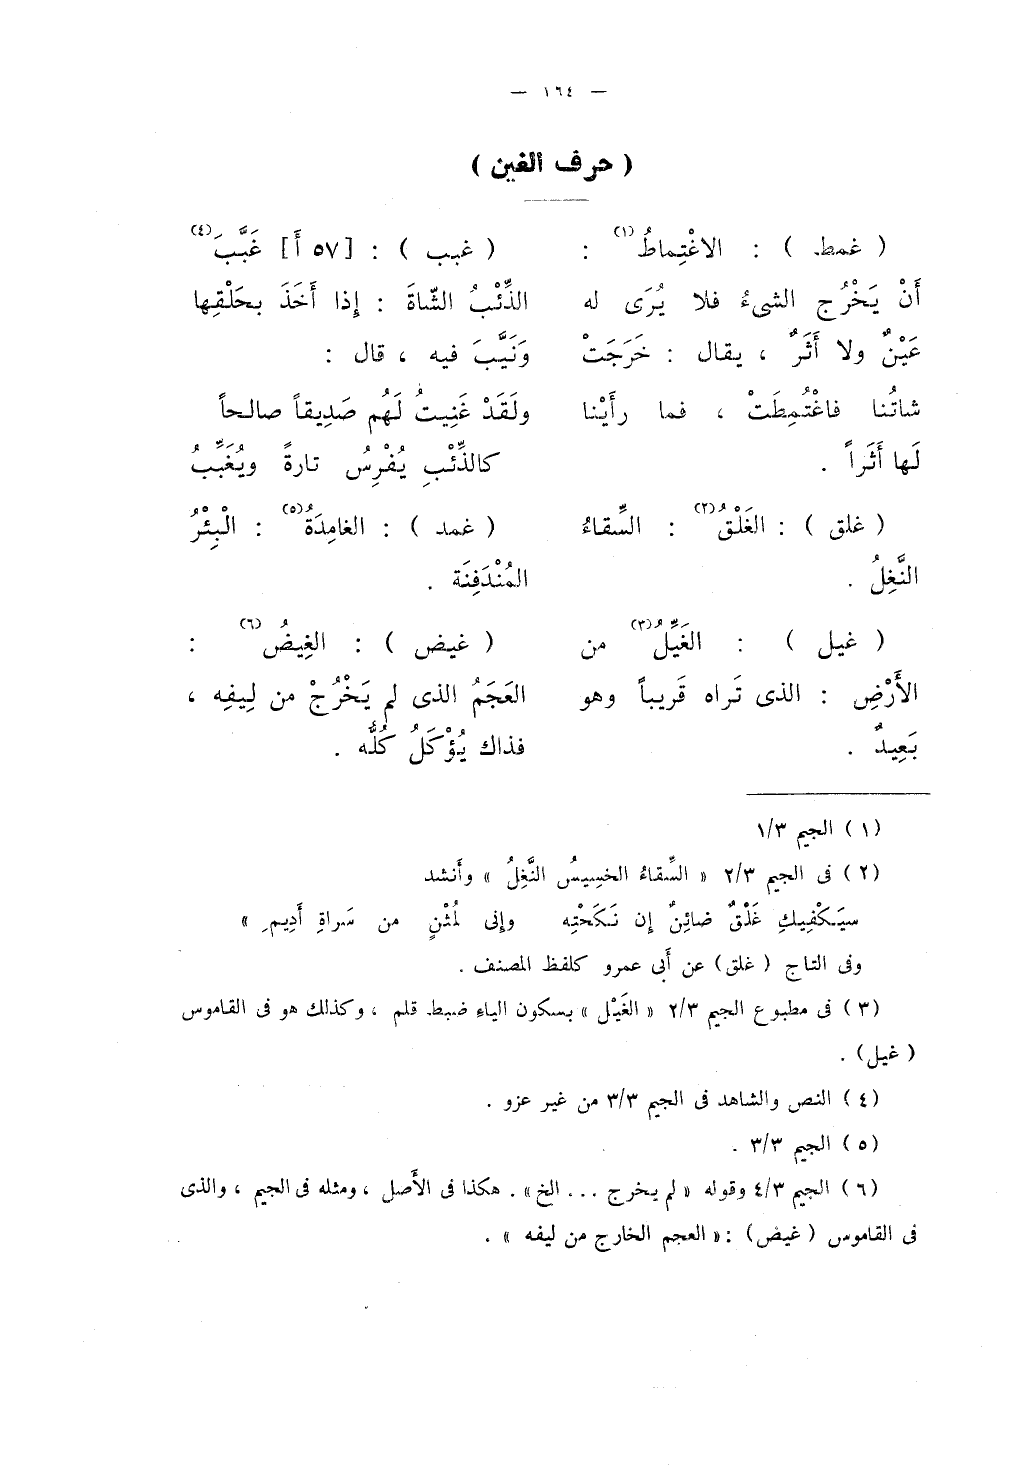 — ١٦٤ —
( حرف الغين )
( غمط ) : الاغْتِماطُ(١) :
أَنْ يَخْرُج الشىءُ فلا يُرَى له
عَيْنٌ ولا أَثَرٌ ، يقال : خَرَجَتْ
شاتُنا فاغْتُمِطَتْ ، فما رأَيْنا
لَها أَثَراً .
( غلق ) : الغَلْقُ(٢) : السِّقاءُ
النَّغِلُ .
( غيل ) : الغَيِّلُ(٣) من
الأَرْضِ : الذى تَراه قَريباً وهو
بَعِيدٌ .
( غبب ) : [٥٧ أَ] غَبَّبَ(٤)
الذِّئْبُ الشّاةَ : إِذا أَخَذَ بحَلْقِها
وَنَيَّبَ فيه ، قال :
ولَقَدْ غَنِيتُ لَهُم صَدِيقاً صالحاً
كالذِّئْبِ يُفْرِسُ تارةً ويُغَبِّبُ
( غمد ) : الغامِدَةُ(٥) : الْبِئْرُ
المُنْدَفِنَة .
( غيض ) : الغِيضُ(٦) :
العَجَمُ الذى لم يَخْرُجْ من لِيفِه ،
فذاك يُؤْكَلُ كُلُّه .
(١) الجيم ١/٣
(٢) فى الجيم ٢/٣ « السِّقاءُ الخسِيسُ النَّغِلُ » وأَنشد
سيَكْفِيكِ غَلْقٌ ضائِنٌ إِن نَكَحْتِه وإِنى لمُثْنٍ من سَراةِ أَدِيمِ »
وفى التاج (غلق) عن أَبى عمرو كلفظ المصنف .
(٣) فى مطبوع الجيم ٢/٣ « الغَيْل » بسكون الياءِ ضبط قلم ، وكذلك هو فى القاموس
(غيل) .
(٤) النص والشاهد فى الجيم ٣/٣ من غير عزو .
(٥) الجيم ٣/٣ .
(٦) الجيم ٤/٣ وقوله « لم يخرج ... الخ » . هكذا فى الأَصل ، ومثله فى الجيم ، والذى
فى القاموس (غيض) : « العجم الخارج من ليفه » .